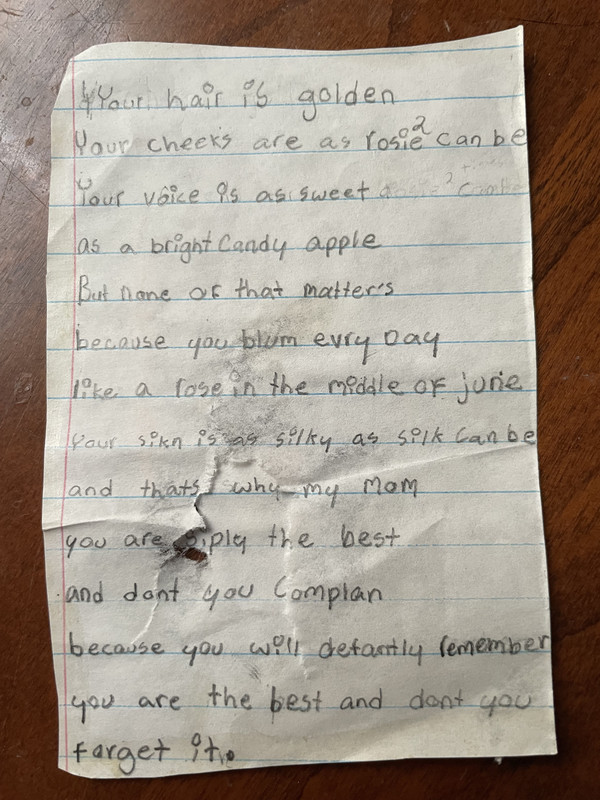 Your hair is golden
Your cheeks are as rosie2 can be
Your voice is as sweet
as a bright candy apple
But none of that matter's
because you blum evry Day
like a rose in the middle of june
your sikn is as silky as silk can be
and thats why my Mom
you are siply the best
and dont you Complan
because you will defantly remember
you are the best and dont you
forget it.